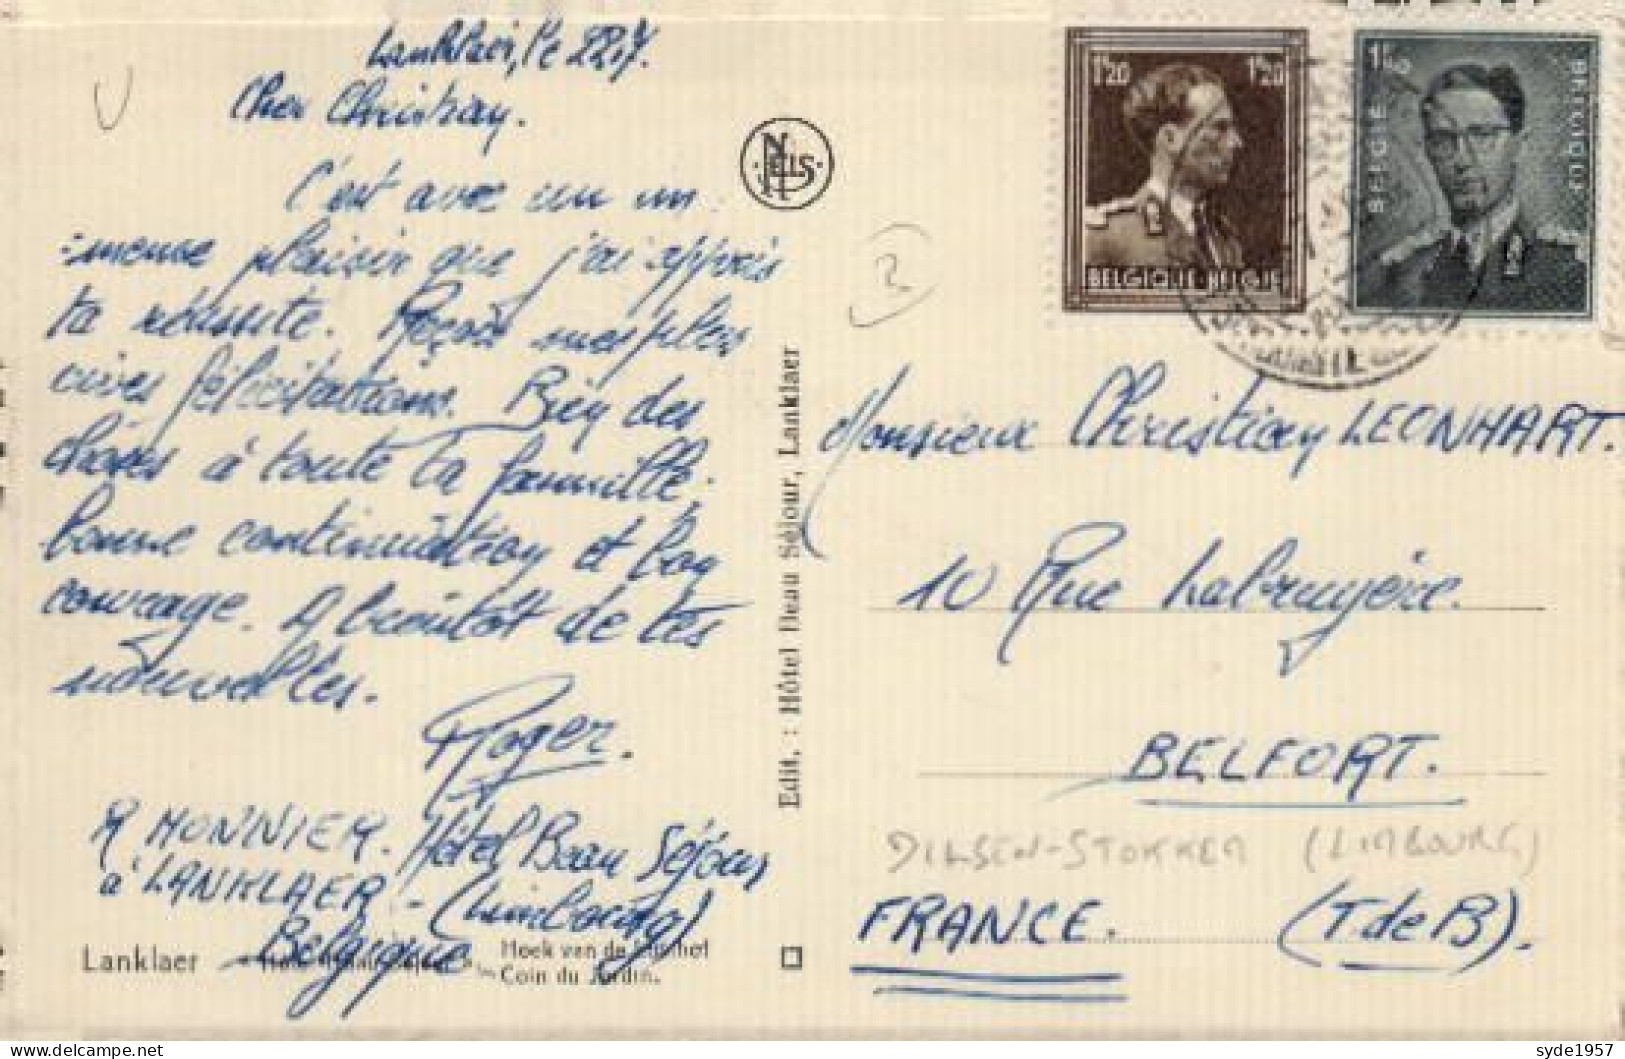 Lanklaer, le 22.7.
Cher Christian.
C'est avec un im
:mense plaisir que j'ai appris
ta réussite. Reçois mes plus
vives félicitations. Bien des
choses à toute ta famille.
bonne continuation et bon
courage. A bientôt de tes
nouvelles.
Roger.
R MONNIER. Hôtel Beau Séjour
à LANKLAER - (Limbourg)
Belgique
Lanklaer
Hoek van de
Coin du Jardin.
Edit. : Hôtel Beau Séjour, Lanklaer
NELS
1.20 1.20
BELGIQUE-BELGIE
1.50
BELGIE
BELGIQUE
Monsieur Christian LEONHART.
10 Rue Labruyère.
BELFORT.
DILSEN-STOKKEM (LIMBOURG)
FRANCE. (T de B).
syde1957